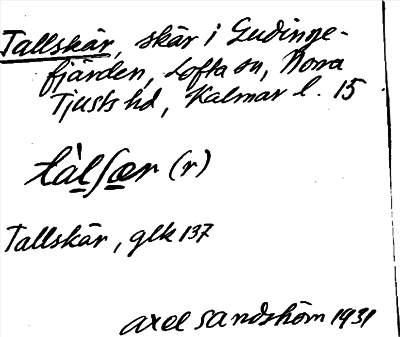 Tallskär, skär i Gudinge-
fjärden, Lofta sn, Norra
Tjusts hd, Kalmar l. 15
tàlʃær (r)
Tallskär, glk 137
Axel Sandström 1931